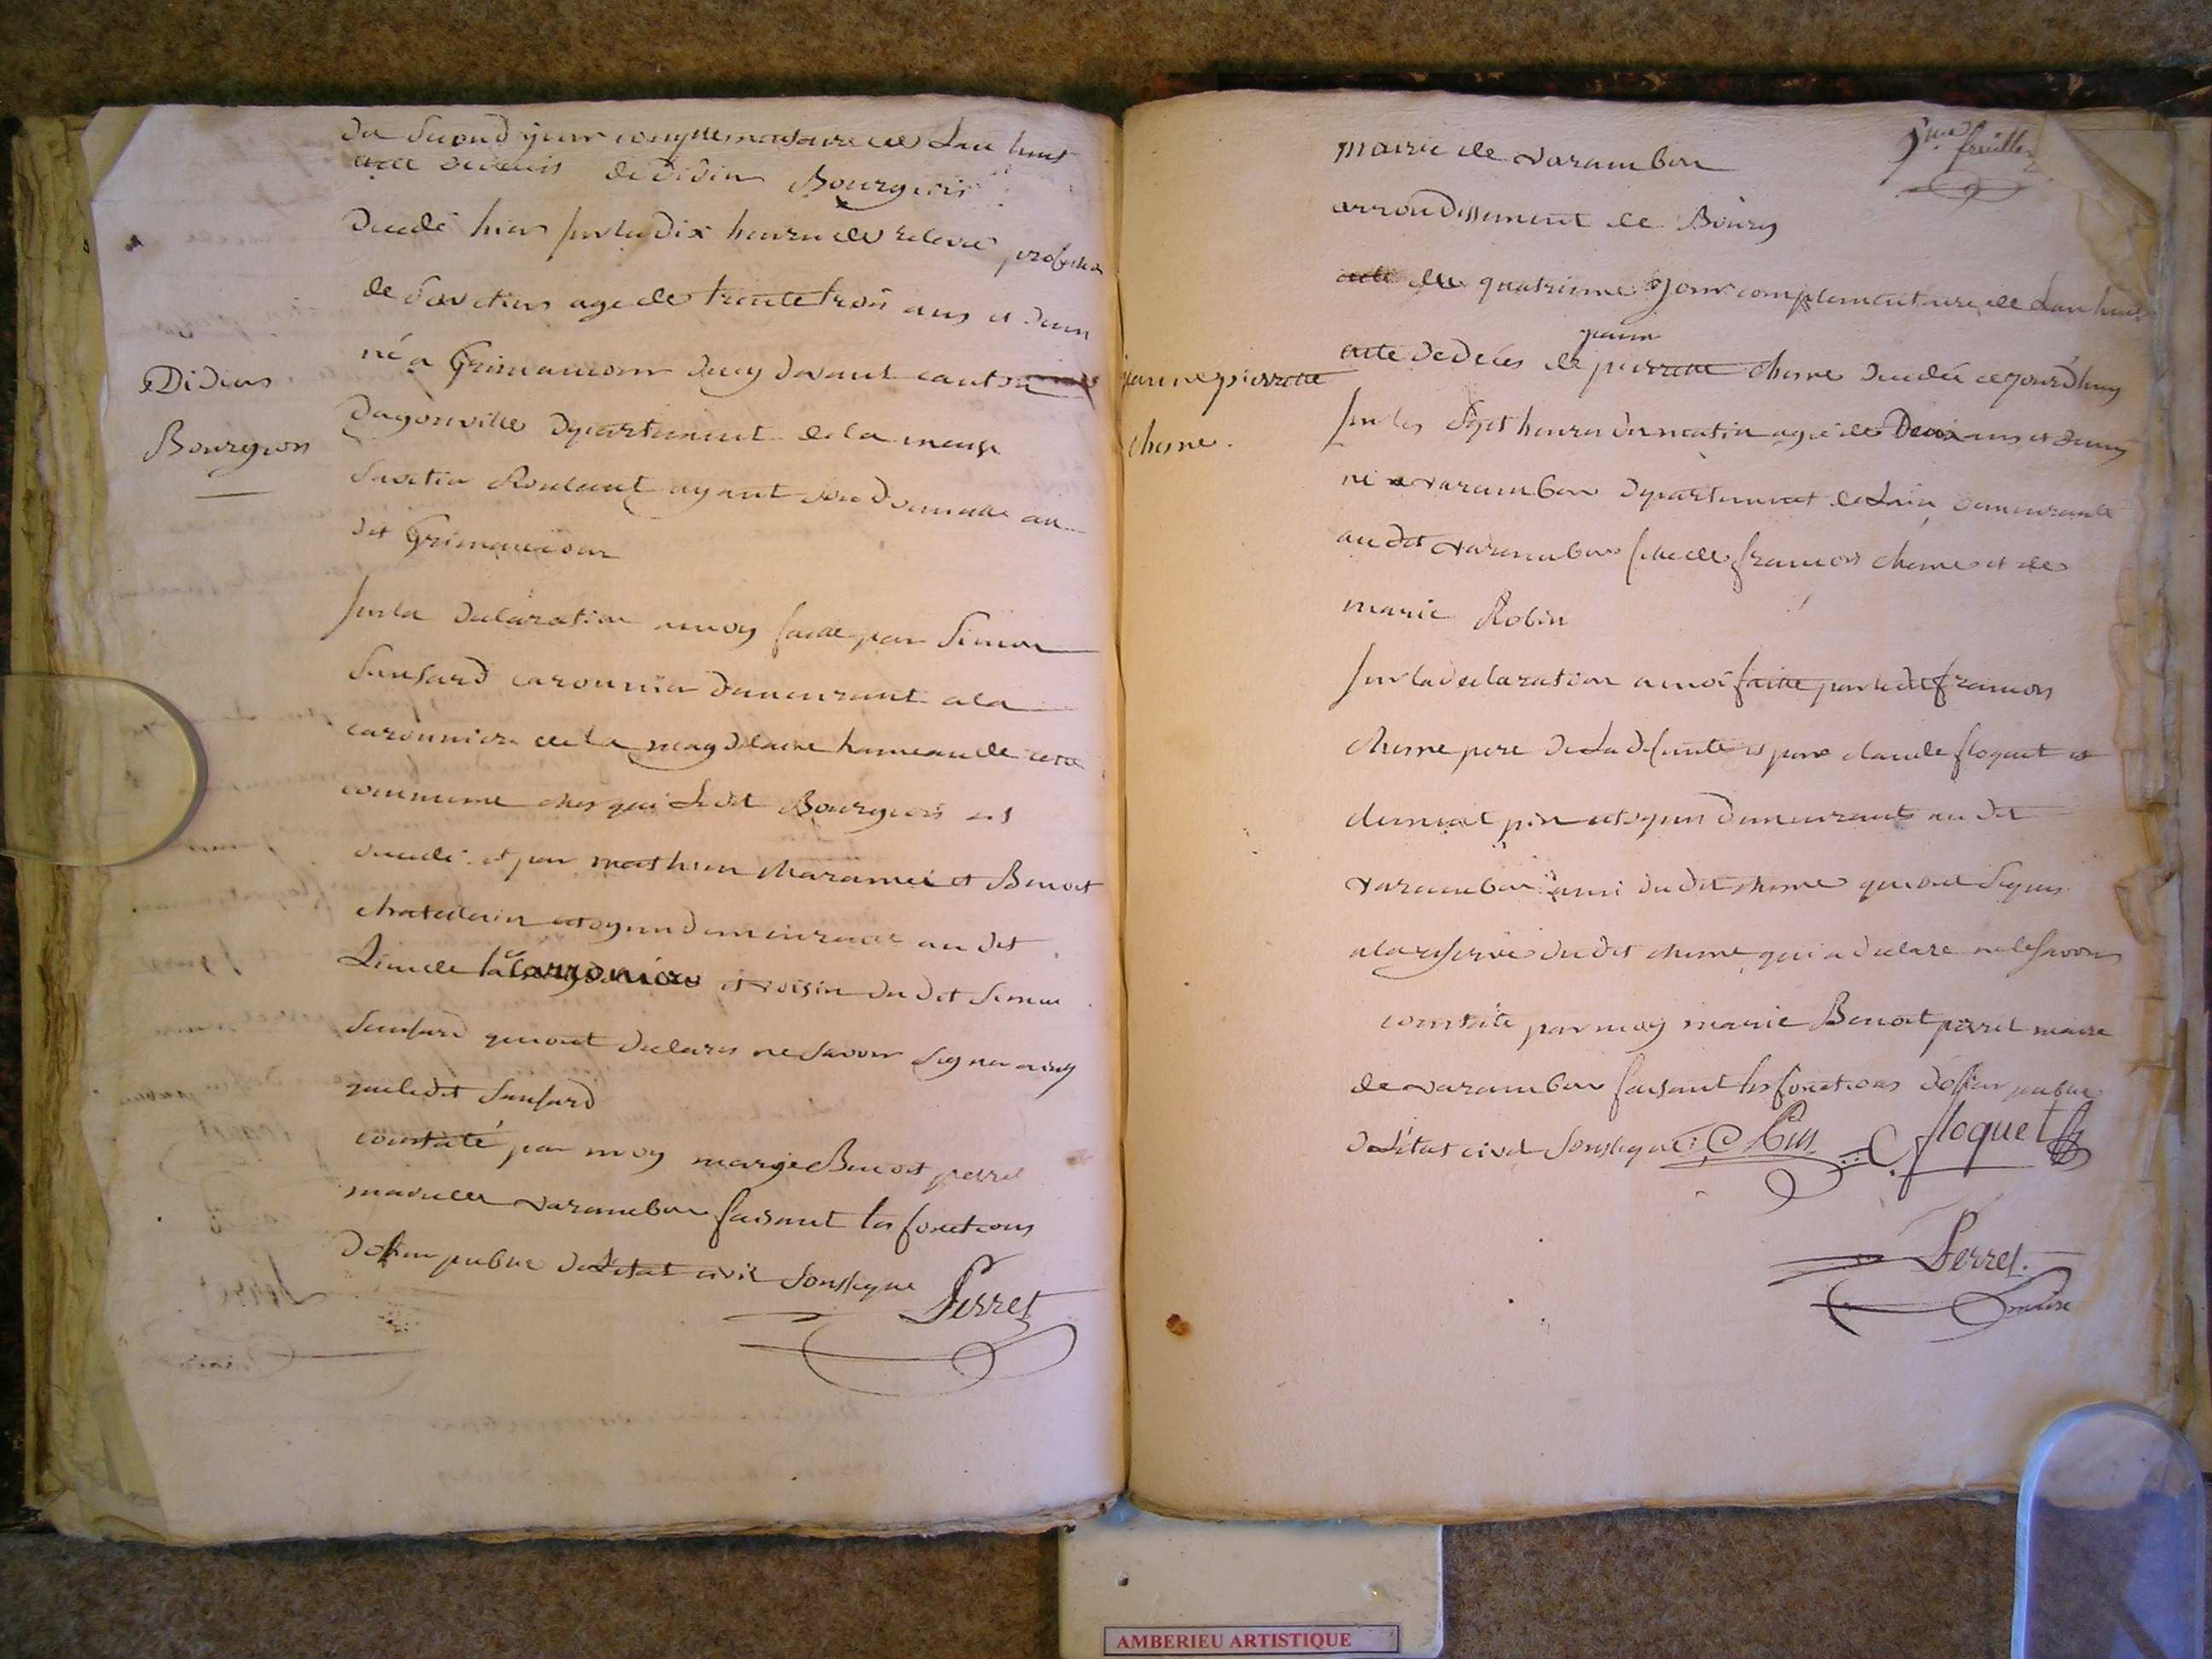 du second jour complementaire de Lan huit
acte de deces de Didier Bourgeois
decedé hier sur les dix heures de relevé profession
de savetier age de trente trois ans et demi
né a Grimaucour cy devant canton
dagonville departement de la meuse
savetier Roulant ayant son domicille au
dit Grimaucour
sur la declaration a moy faitte par Simon
Sansard caronnier demeurant a la
caronniere de la magdelaine hameau de cette
commune ches qui Ledit Bourgeois est
decede et par mathieu et Benoit
chatelain citoyens demeurant au dit
Lieu de la carroniere et voisin du dit Simon
Sansard qui ont declares ne savoir signer ainsy
que le dit Sansard
constaté par moy marie Benoit perret
maire de varambon faisant les fonctions
dofficier public de Letat civil soussigne Perret
Didier
Bourgeois
5me feuillet
mairie de varambon
arrondissement de Bourg
acte du quatrieme jour complementaire de Lan huit
jeanne
acte de deces de pierrette chosne decedée cejourdhuy
sur les sept heures du matin agée de Deux ans et demy
né a varambon departement de Lain demeurante
au dit varambon fille de francois chosne et de
marie Robin
sur la declaration a moi faitte par le dit francois
chosne pere de La defunte et par claude floquet et
clement citoyens demeurants au dit
varambon ami du dit chosne qui ont signes
a la reserve du dit chosne qui a declare ne le savoir
constaté par moy marie Benoit perret maire
de varambon faisant les fonctions dofficier public
de Létat civil soussigne C floquet
Perret
maire
jeanne pierrette
chosne.
AMBERIEU ARTISTIQUE